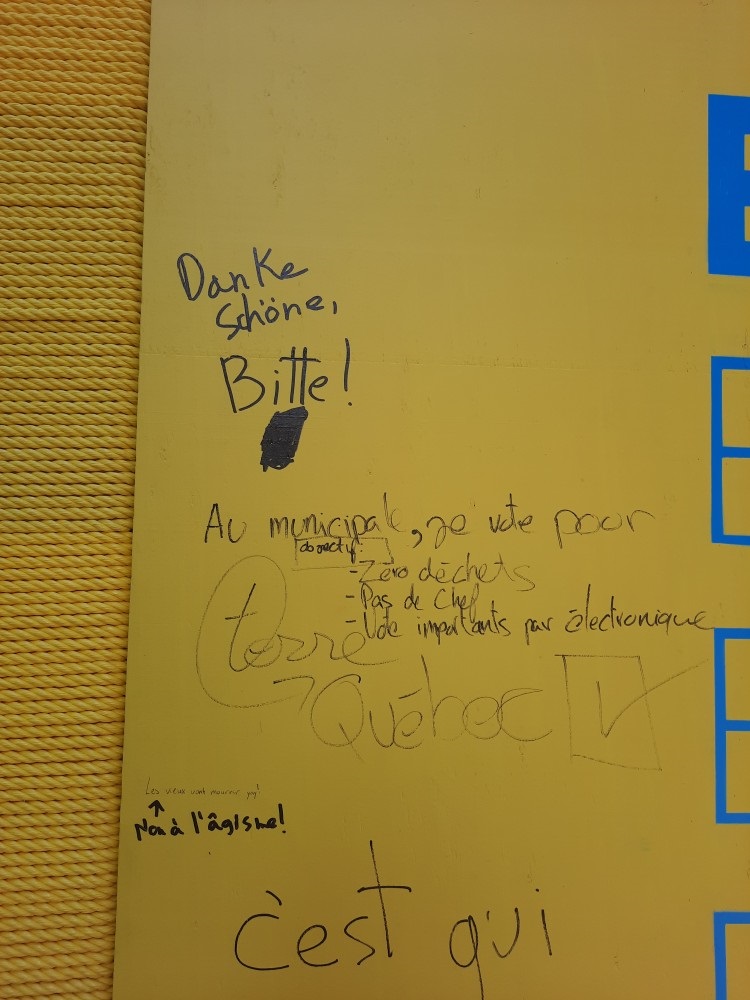 Danke
Schöne,
Bitte!
Au municipale, je vote pour
objectif:
- Zéro déchets
- Pas de Chef
- Vote importants par électronique
terre
Québec
Les vieux vont mourir yay!
Non à l'âgisme!
c'est qui